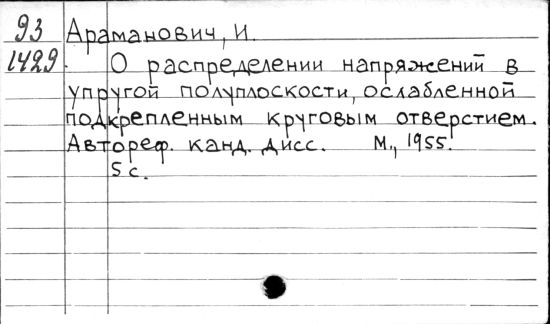 93 Араманович, И.
1429. О распределении напряжений в
упругой полуплоскости, ослабленной
подкрепленным круговым отверстием.
Автореф. канд. дисс. М., 1955.
5 с.